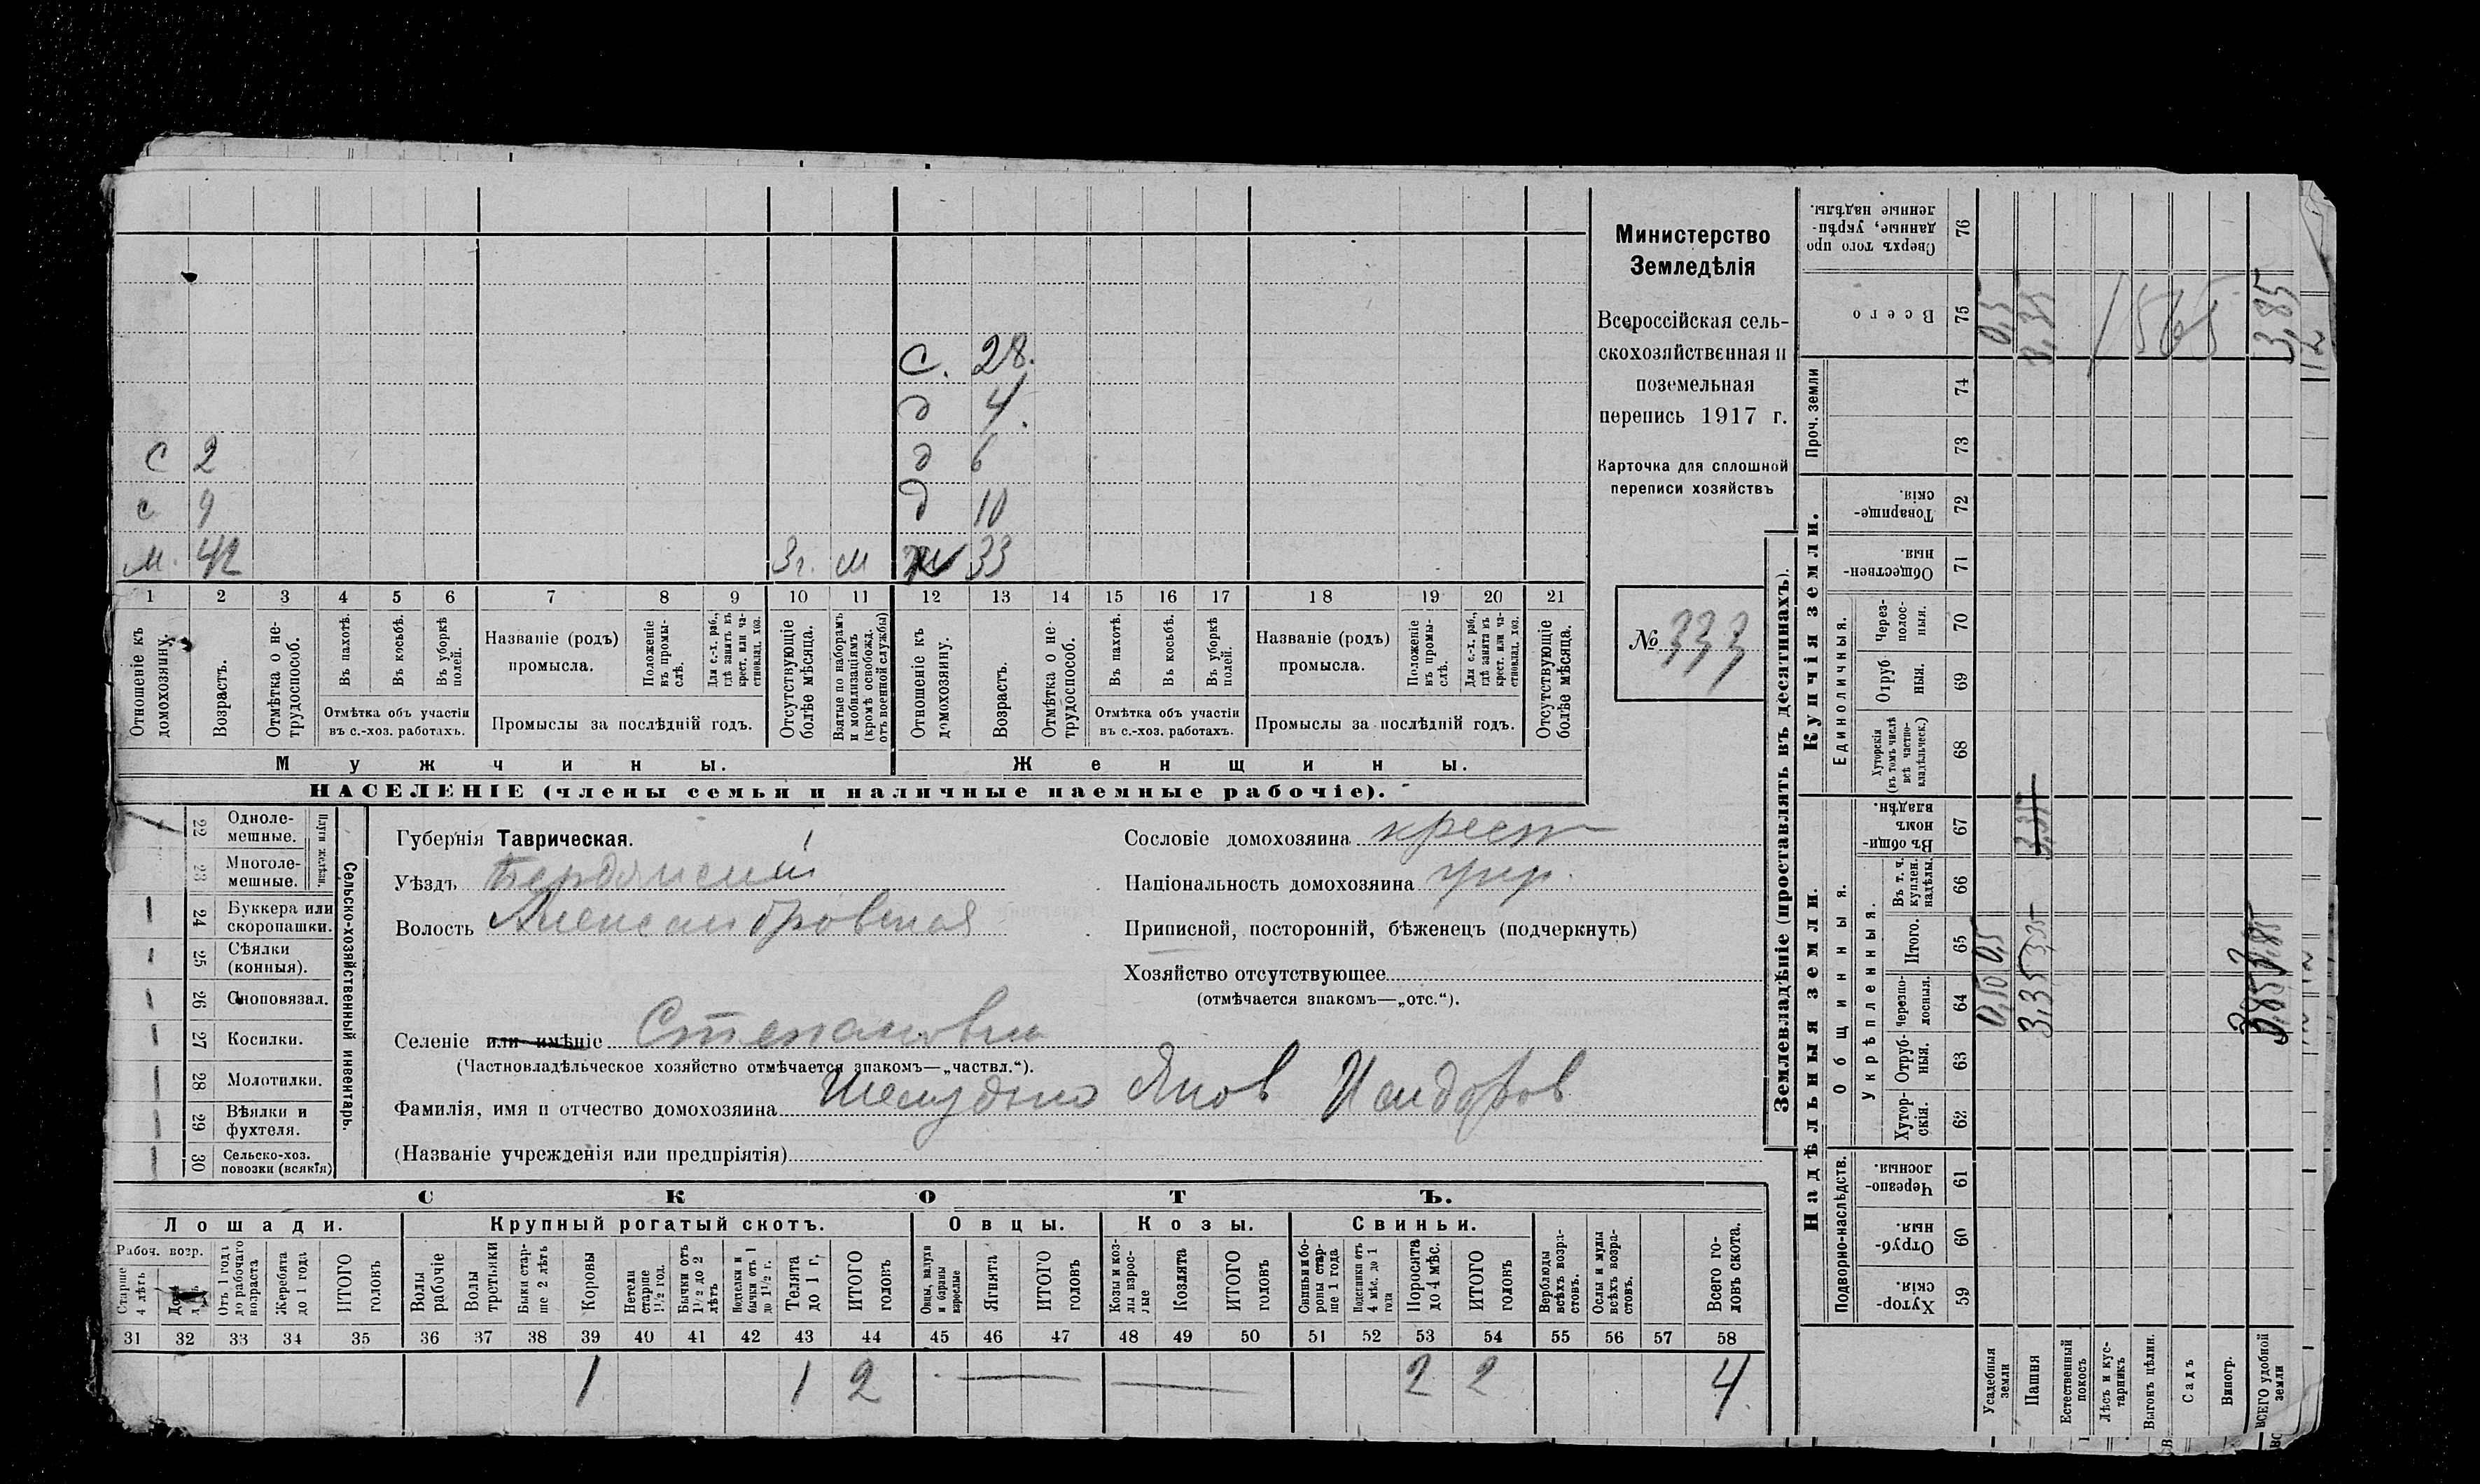 Министерство
Земледѣлія
Всероссійская сель-
скохозяйственная и
поземельная
перепись 1917 г.
Карточка для сплошной
переписи хозяйствъ
№ 333
с. 28.
д 4.
с 2 д 6
с 9 д 10
м. 42 3г. м ж 33
1 2 3 4 5 6 7 8 9 10 11 12 13 14 15 16 17 18 19 20 21
Отношеніе къ домохозяину.
Возрастъ.
Отмѣтка о не-трудоспособ.
Въ пахотѣ.
Въ косьбѣ.
Въ уборкѣ полей.
Отмѣтка объ участіи
въ с.-хоз. работахъ.
Названіе (родъ)
промысла.
Положеніе въ промы-слѣ.
Для с.-х. раб., гдѣ занятъ въ крест. или ча-стновлад. хоз.
Промыслы за послѣдній годъ.
Отсутствующіе болѣе мѣсяца.
Взятые по наборамъ и мобилизаціямъ (кромѣ освобожд. отъ военной службы)
Отношеніе къ домохозяину.
Возрастъ.
Отмѣтка о не-трудоспособ.
Въ пахотѣ.
Въ косьбѣ.
Въ уборкѣ полей.
Отмѣтка объ участіи
въ с.-хоз. работахъ.
Названіе (родъ)
промысла.
Положеніе въ промы-слѣ.
Для с.-х. раб., гдѣ занята въ крест. или ча-стновлад. хоз.
Промыслы за послѣдній годъ.
Отсутствующіе болѣе мѣсяца.
Мужчины. Женщины.
НАСЕЛЕНІЕ (члены семьи и наличные наемные рабочіе).
Сельско-хозяйственный инвентарь.
Плуги желѣзн.
22 Одноле-мешные.
23 Многоле-мешные.
24 Буккера или скоропашки.
25 Сѣялки (конныя).
26 Сноповязал.
27 Косилки.
28 Молотилки.
29 Вѣялки и фухтеля.
30 Сельско-хоз. повозки (всякія)
Губернія Таврическая.
Уѣздъ Бердянский
Волость Александровская
Селеніе или имѣніе Степановка
(Частновладѣльческое хозяйство отмѣчается знакомъ—„частвл.“).
Сословіе домохозяина крест
Національность домохозяина укр.
Приписной, посторонній, бѣженецъ (подчеркнуть)
Хозяйство отсутствующее
(отмѣчается знакомъ—„отс.“).
Фамилія, имя и отчество домохозяина Шелудько Яков Исидоров
(Названіе учрежденія или предпріятія)
СКОТЪ.
Лошади. Крупный рогатый скотъ. Овцы. Козы. Свиньи.
Рабоч. возр.
Старше 4 лѣтъ
От 1 года до рабочаго возраста
Жеребята до 1 года
ИТОГО головъ
Волы рабочіе
Волы третьяки
Быки стар-ше 2 лѣтъ
Коровы
Нетели старше 1½ год.
Бычки отъ 1½ до 2 лѣтъ
Подтелки и бычки отъ 1 до 1½ г.
Телята до 1 г.
ИТОГО головъ
Овцы, валухи и бараны взрослые
Ягнята
ИТОГО головъ
Козы и коз-лы взрос-лые
Козлята
ИТОГО головъ
Свиньи и бо-ровы стар-ше 1 года
Подсвинки отъ 4 мѣс. до 1 года
Поросята до 4 мѣс.
ИТОГО головъ
Верблюды всѣхъ возра-стовъ.
Ослы и мулы всѣхъ возра-стовъ.
Всего го-ловъ скота.
31 32 33 34 35 36 37 38 39 40 41 42 43 44 45 46 47 48 49 50 51 52 53 54 55 56 57 58
1 1 2 — — 2 2 4
Землевладѣніе (проставлять въ десятинахъ).
Надѣльныя земли. Купчія земли.
Подворно-наслѣдств.
Общинныя.
Укрѣпленныя.
Единоличныя.
Проч. земли
Хутор-скія. 59
Отруб-ныя. 60
Черезпо-лосныя. 61
Хутор-скія. 62
Отруб-ныя. 63
Черезпо-лосныя. 64
Итого. 65
Въ т. ч. куплен. надѣлы. 66
Въ общин-номъ владѣн. 67
Хуторскія (въ томъ числѣ всѣ частно-владѣльческ.) 68
Отруб-ныя. 69
Через-полос-ныя. 70
Обществен-ныя. 71
Товарище-скія. 72
73
74
Всего 75
Сверхъ того про-данные, укрѣп-ленные надѣлы. 76
Усадебныя земли 0,50 0,5 0,5
Пашня 3,35 3,35 3,35 3,35
Естественный покосъ
Лѣсъ и кус-тарникъ
Выгонъ цѣлин.
Садъ
Виногр.
ВСЕГО удобной земли 3,85 3,85 3,85
1565